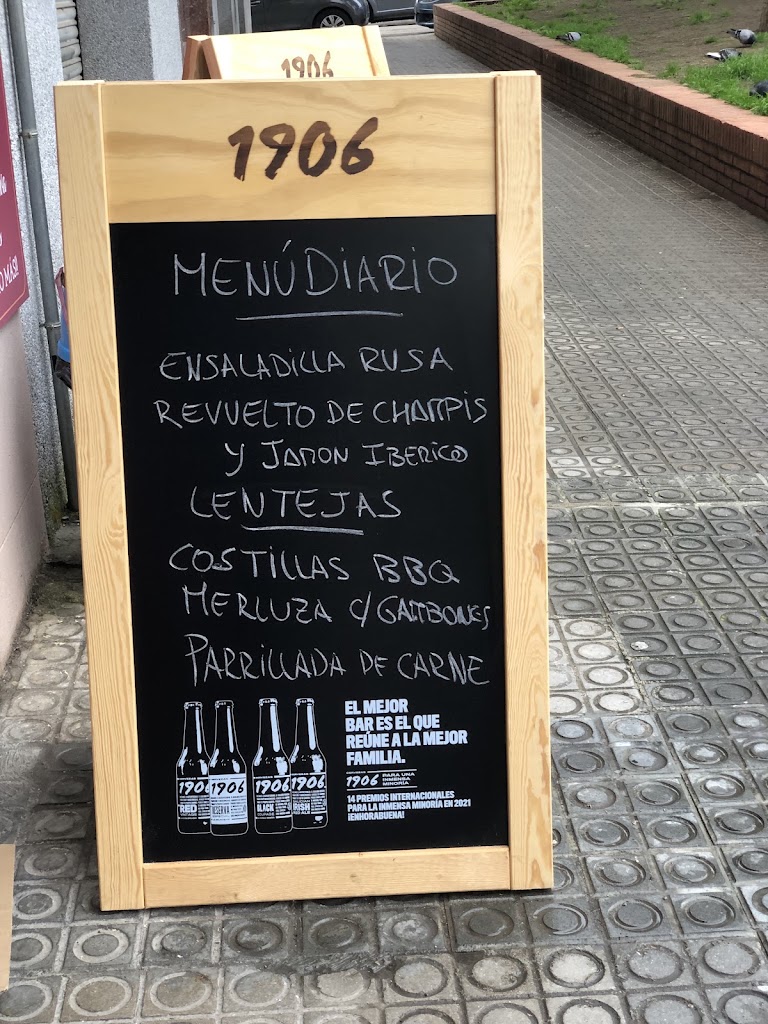 1906
1906
MENÚ DIARIO
ENSALADILLA RUSA
REVUELTO DE CHAMPIS
Y JAMON IBERICO
LENTEJAS
COSTILLAS BBQ
MERLUZA C/GAMBONES
PARRILLADA DE CARNE
EL MEJOR
BAR ES EL QUE
REÚNE A LA MEJOR
FAMILIA.
1906 PARA UNA
INMENSA
MINORÍA
14 PREMIOS INTERNACIONALES
PARA LA INMENSA MINORÍA EN 2021
¡ENHORABUENA!
1906
RED
1906
RESERVA
1906
BLACK
COUPAGE
1906
IRISH
RED ALE
O MÁS!